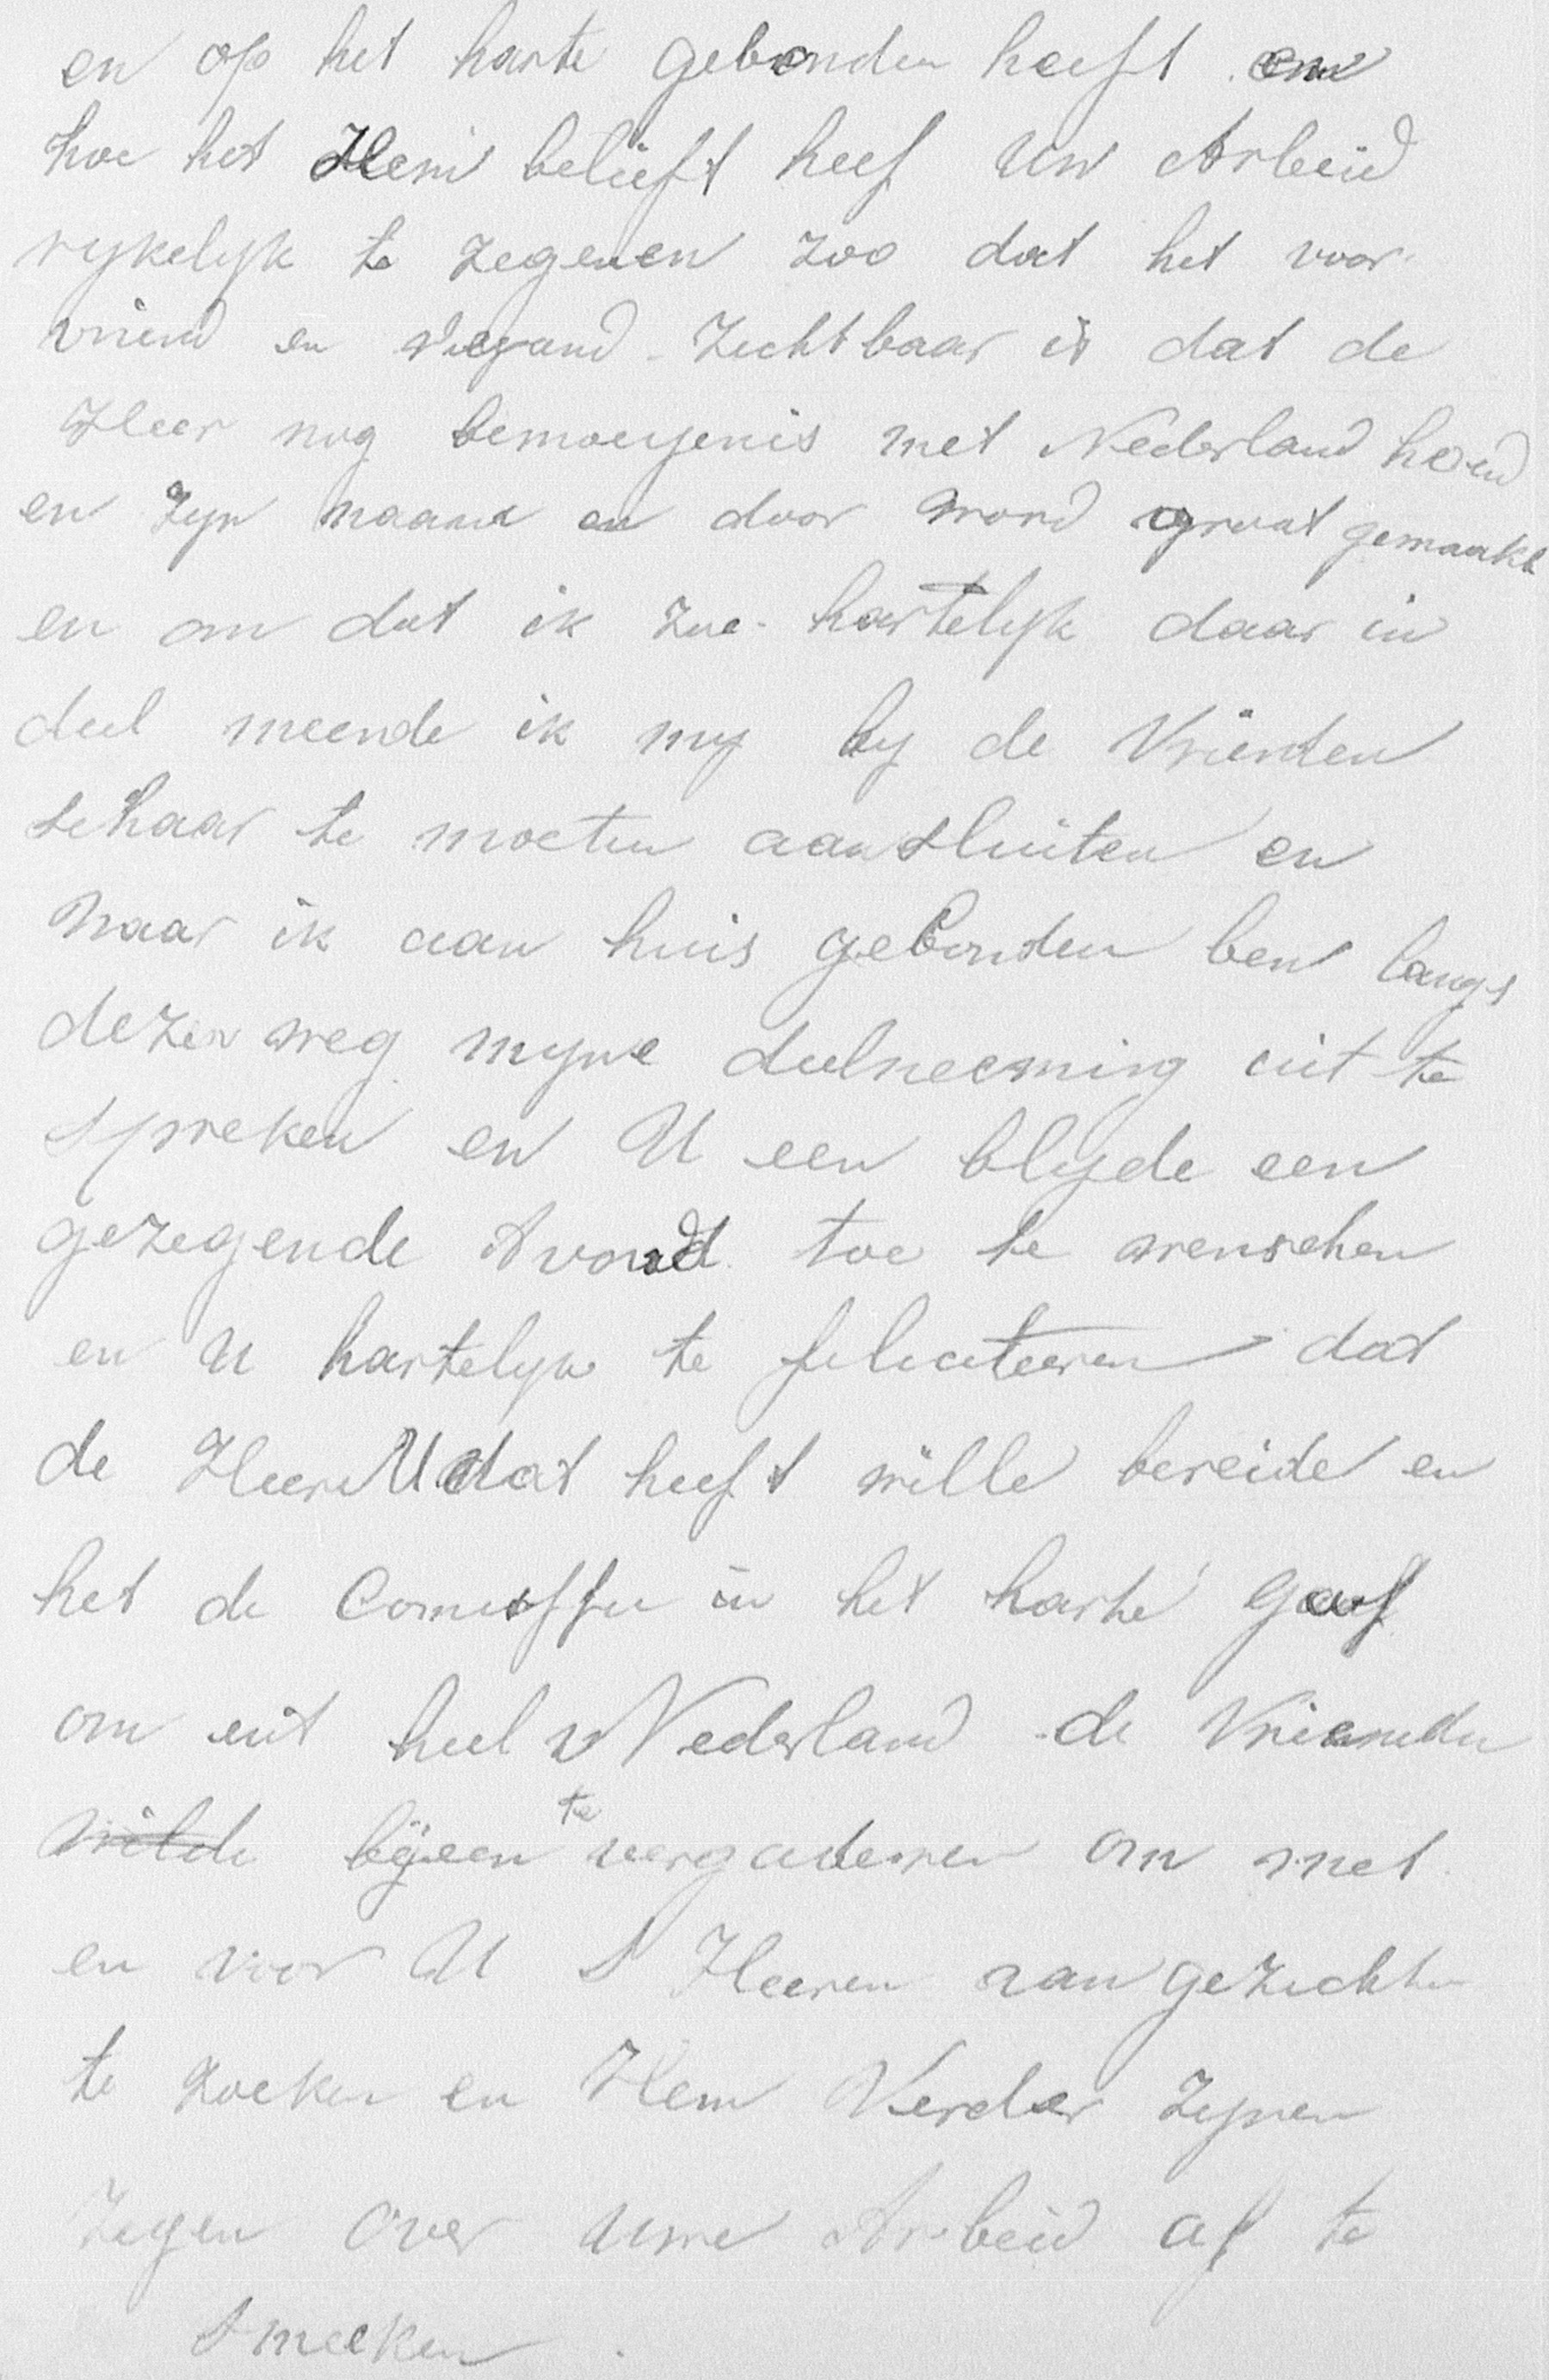 en op het harte gebonden heeft en
hoe het Hem belieft heef Uw Arbeid
rykelyk te zegenen zoo dat het voor
vriend en vieyand zechtbaar is dat de
Heer nog bemoeyenis met Nederland houd
en zyn naam er door word groot gemaakt
en om dat ik zoo hartelyk daar in
deel meende ik my by de Vrienden
schaar te moeten aansluiten en
waar ik aan huis gebonden ben langs
dezen weg myne deelneeming uit te
spreken en U een blyde een
gezegende Avond toe te wenschen
en U hartelyk te feliciteeren dat
de Heere U dat heeft wille bereide en
het de Comissie in het harte gaf
om uit heel Nederland de Vrienden
~~wilde~~ byeen te vergaderen om met
en voor U S Heeren aangezichte
te zoeken en Hem Verder zynen
zegen over uwe Arbeid af te
smeeken.